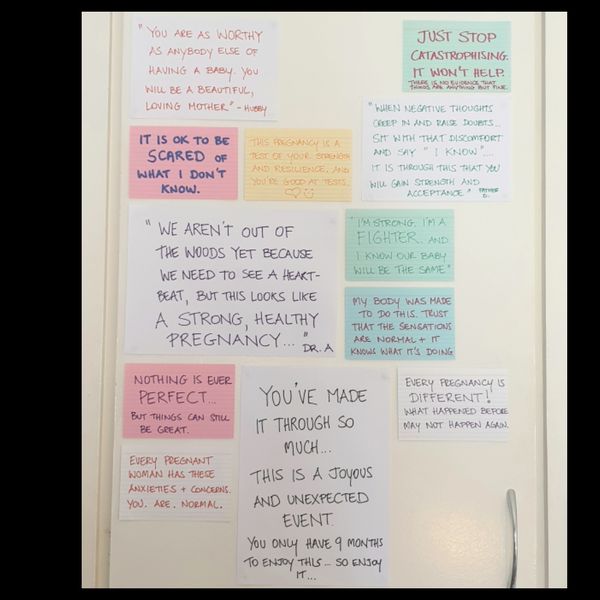 "YOU ARE AS WORTHY
AS ANYBODY ELSE OF
HAVING A BABY. YOU
WILL BE A BEAUTIFUL,
LOVING MOTHER" - HUBBY
JUST STOP
CATASTROPHISING.
IT WON'T HELP.
THERE IS NO EVIDENCE THAT
THINGS ARE ANYTHING BUT FINE.
"WHEN NEGATIVE THOUGHTS
CREEP IN AND RAISE DOUBTS...
SIT WITH THAT DISCOMFORT
AND SAY "I KNOW"....
IT IS THROUGH THIS THAT YOU
WILL GAIN STRENGTH AND
ACCEPTANCE" FATHER
D.
IT IS OK TO BE
SCARED OF
WHAT I DON'T
KNOW.
THIS PREGNANCY IS A
TEST OF YOUR STRENGTH
AND RESILIENCE, AND
YOU'RE GOOD AT TESTS.
"WE AREN'T OUT OF
THE WOODS YET BECAUSE
WE NEED TO SEE A HEART-
BEAT, BUT THIS LOOKS LIKE
A STRONG, HEALTHY
PREGNANCY..."
DR. A
"I'M STRONG. I'M A
FIGHTER. AND
I KNOW OUR BABY
WILL BE THE SAME"
MY BODY WAS MADE
TO DO THIS. TRUST
THAT THE SENSATIONS
ARE NORMAL + IT
KNOWS WHAT IT'S DOING
NOTHING IS EVER
PERFECT...
BUT THINGS CAN STILL
BE GREAT.
YOU'VE MADE
IT THROUGH SO
MUCH...
THIS IS A JOYOUS
AND UNEXPECTED
EVENT.
YOU ONLY HAVE 9 MONTHS
TO ENJOY THIS... SO ENJOY
IT...
EVERY PREGNANCY IS
DIFFERENT!
WHAT HAPPENED BEFORE
MAY NOT HAPPEN AGAIN.
EVERY PREGNANT
WOMAN HAS THESE
ANXIETIES + CONCERNS.
YOU. ARE. NORMAL.